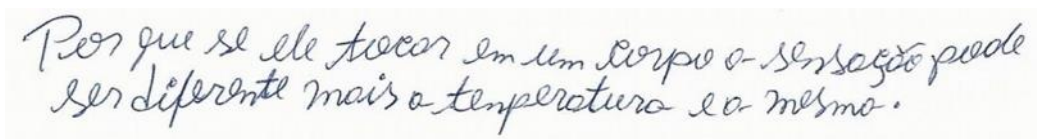 Por que se ele tocar em um corpo a sensação pode
ser diferente mais a temperatura e a mesma.